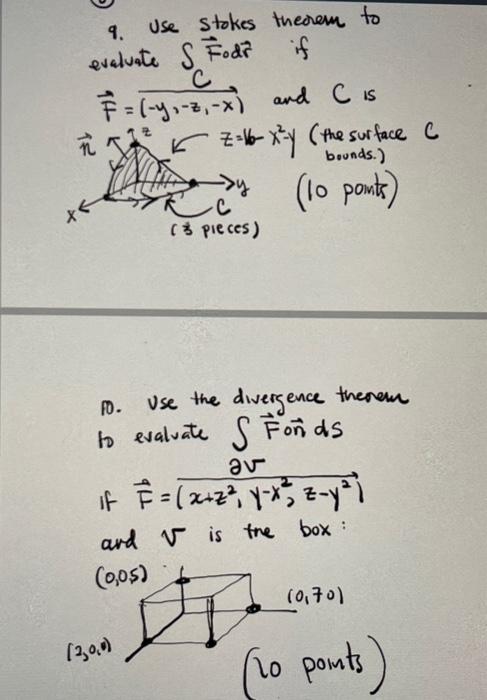 9. Use Stokes theorem to
evaluate ∫ F⃗∘dr⃗ if
C
F⃗ = (-y, -z, -x) and C is
n⃗ z z=16-x²-y (the surface C
bounds.)
y (10 points)
x C
(3 pieces)
10. Use the divergence theorem
to evaluate ∫ F⃗∘n⃗ ds
∂V
if F⃗ = (x+z², y-x², z-y²)
and V is the box:
(0,0,5)
(0,7,0)
(2,0,0)
(10 points)